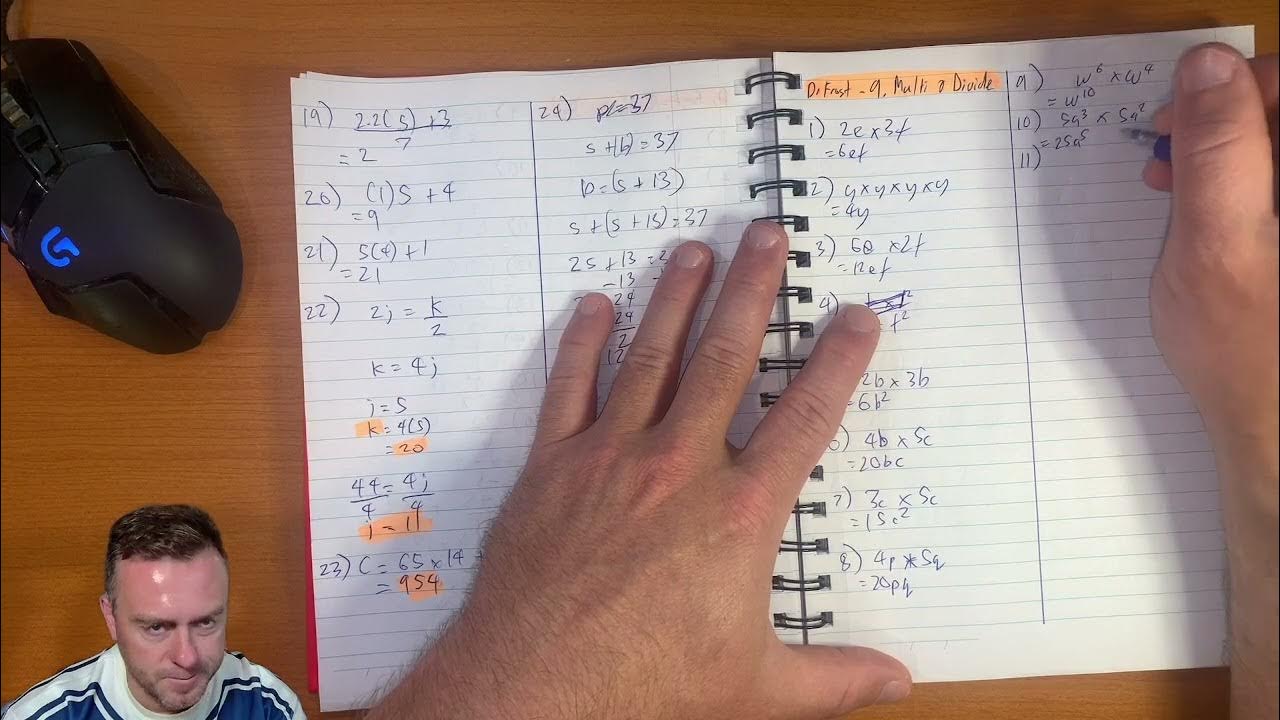 19) 2.2(5)+3
7
= 2
20) (1)5 + 4
= 9
21) 5(4) + 1
= 21
22) 2j = k
2
k = 4j
j = 5
k = 4(5)
= 20
44 = 4j
4 4
j = 11
23) C = 65 × 14 +
= 954
24) pl = 37
s + (b) = 37
p = (s + 13)
s + (s + 13) = 37
2s + 13 =
-13
24
24
2
12
Dr Frost - 9, Multi & Divide
1) 2e × 3f
= 6ef
2) y × y × y × y
= 4y
3) 6e × 2f
= 12ef
4)
= t²
2b × 3b
= 6b²
6) 4b × 5c
= 20bc
7) 3c × 5c
= 15c²
8) 4p * 5q
= 20pq
9) w⁶ × w⁴
= w¹⁰
10) 5a³ × 5a²
= 25a⁵
11)